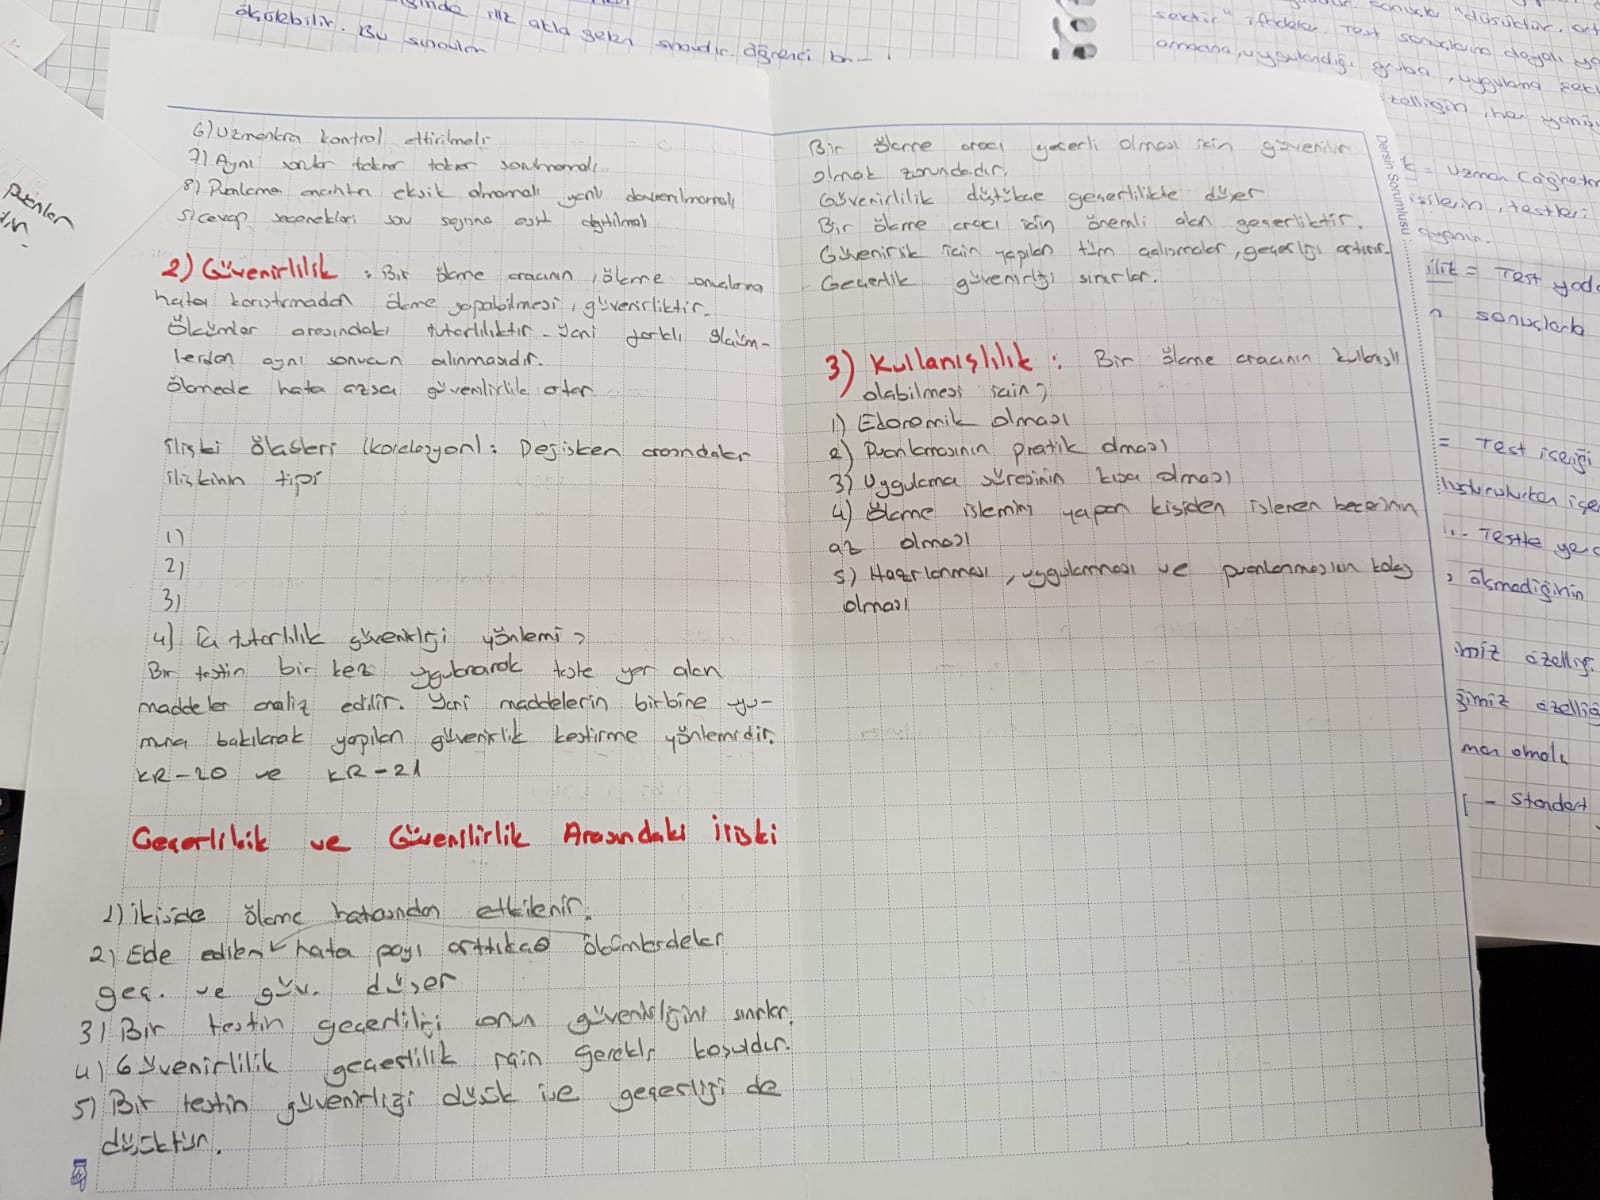 ölçülebilir. Bu sınavlar
ilk akla gelen sınavdır. öğrenci
sonuçlar "düşüktür. ort
sektir" ifadeler. Test sonuçlarına dayalı
amacına, uygulandığı gruba, uygulama şekl
zelliğin, her yönüy
puanlar
6) Uzmanlara kontrol ettirilmeli
7) Aynı sorular tekrar tekrar sorulmamalı
8) Puanlama anahtarı eksik olmamalı yanlı davranılmamalı
9) cevap seçenekleri soru sayısına eşit dağıtılmalı
2) Güvenirlilik : Bir ölçme aracının, ölçme sonuçlarına
hata karıştırmadan ölçme yapabilmesi, güvenirliktir.
Ölçümler arasındaki tutarlılıktır. Yani farklı ölçüm-
lerden aynı sonucun alınmasıdır.
Ölçmede hata azsa güvenirlilik artar.
ilişki ölçüleri (korelasyon): Değişken arasındaki
ilişkinin tipi
1)
2)
3)
4) İç tutarlılık güvenirliği yöntemi ;
Bir testin bir kez uygulanarak teste yer alan
maddeler analiz edilir. Yani maddelerin birbirine uyu-
muna bakılarak yapılan güvenirlik kestirme yöntemidir.
KR-20 ve KR-21
Geçerlilik ve Güvenilirlik Arasındaki İlişki
1) ikiside ölçme hatasından etkilenir.
2) Elde edilen hata payı arttıkça ölçümlerdeki
geç. ve güv. düşer
3) Bir testin geçerliliği onun güvenirliğini sınırlar.
4) Güvenirlilik geçerlilik için gerekli koşuldur.
5) Bir testin güvenirliği düşük ise geçerliği de
düşüktür.
Bir ölçme aracı geçerli olması için güvenilir
olmak zorundadır.
Güvenirlilik düştükçe geçerlilikte düşer
Bir ölçme aracı için önemli olan geçerliktir.
Güvenirlik için yapılan tüm çalışmalar, geçerliği artırır.
Geçerlik güvenirliği sınırlar.
3) Kullanışlılık : Bir ölçme aracının kullanışlı
olabilmesi için ;
1) Ekonomik olması
2) Puanlamasının pratik olması
3) Uygulama süresinin kısa olması
4) Ölçme işlemini yapan kişiden istenen becerinin
az olması
5) Hazırlanması, uygulanması ve puanlanmasının kolay
olması
Dersin Sorumlusu
k = Uzman (öğretm
işilerin, testleri
ilik = Test yada
sonuçlarla
= Test içeriği
luşturulurken içe
Testte yer
ölçmediğinin
imiz özelliğ
ğimiz özelliğ
man olmalı
- Standart